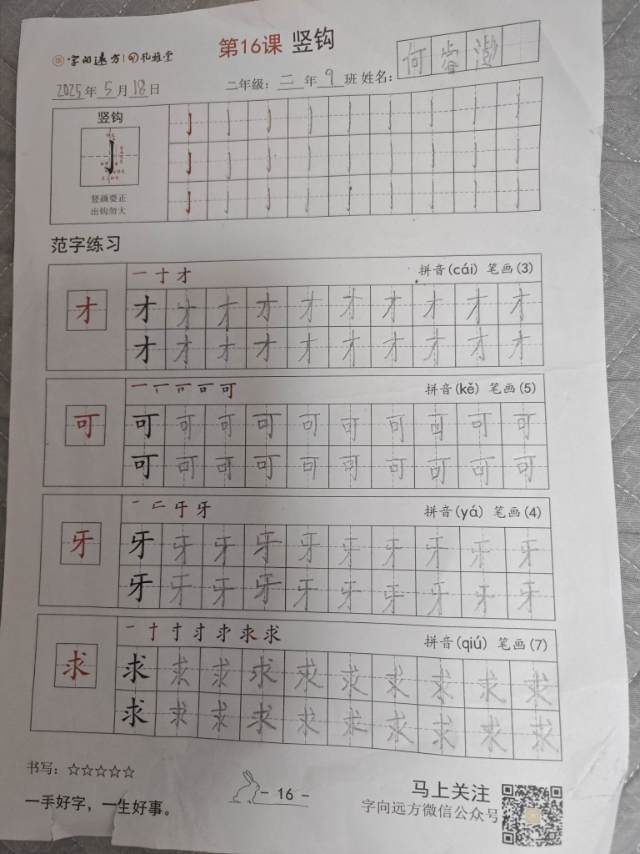 字向远方 孔雅堂
第16课 竖钩
2025年5月18日 二年级：二年9班 姓名：何睿渤
竖钩
竖画要正
出钩勿大
范字练习
一十才 拼音(cái) 笔画(3)
才 才 才 才 才 才 才 才 才 才 才
才 才 才 才 才 才 才 才 才 才
可 拼音(kě) 笔画(5)
可 可 可 可 可 可 可 可 可 可 可
可 可 可 可 可 可 可 可 可 可
牙 拼音(yá) 笔画(4)
牙 牙 牙 牙 牙 牙 牙 牙 牙 牙 牙
牙 牙 牙 牙 牙 牙 牙 牙 牙 牙
求 拼音(qiú) 笔画(7)
求 求 求 求 求 求 求 求 求 求 求
求 求 求 求 求 求 求 求 求 求
书写：☆☆☆☆☆
一手好字，一生好事。
- 16 -
马上关注
字向远方微信公众号